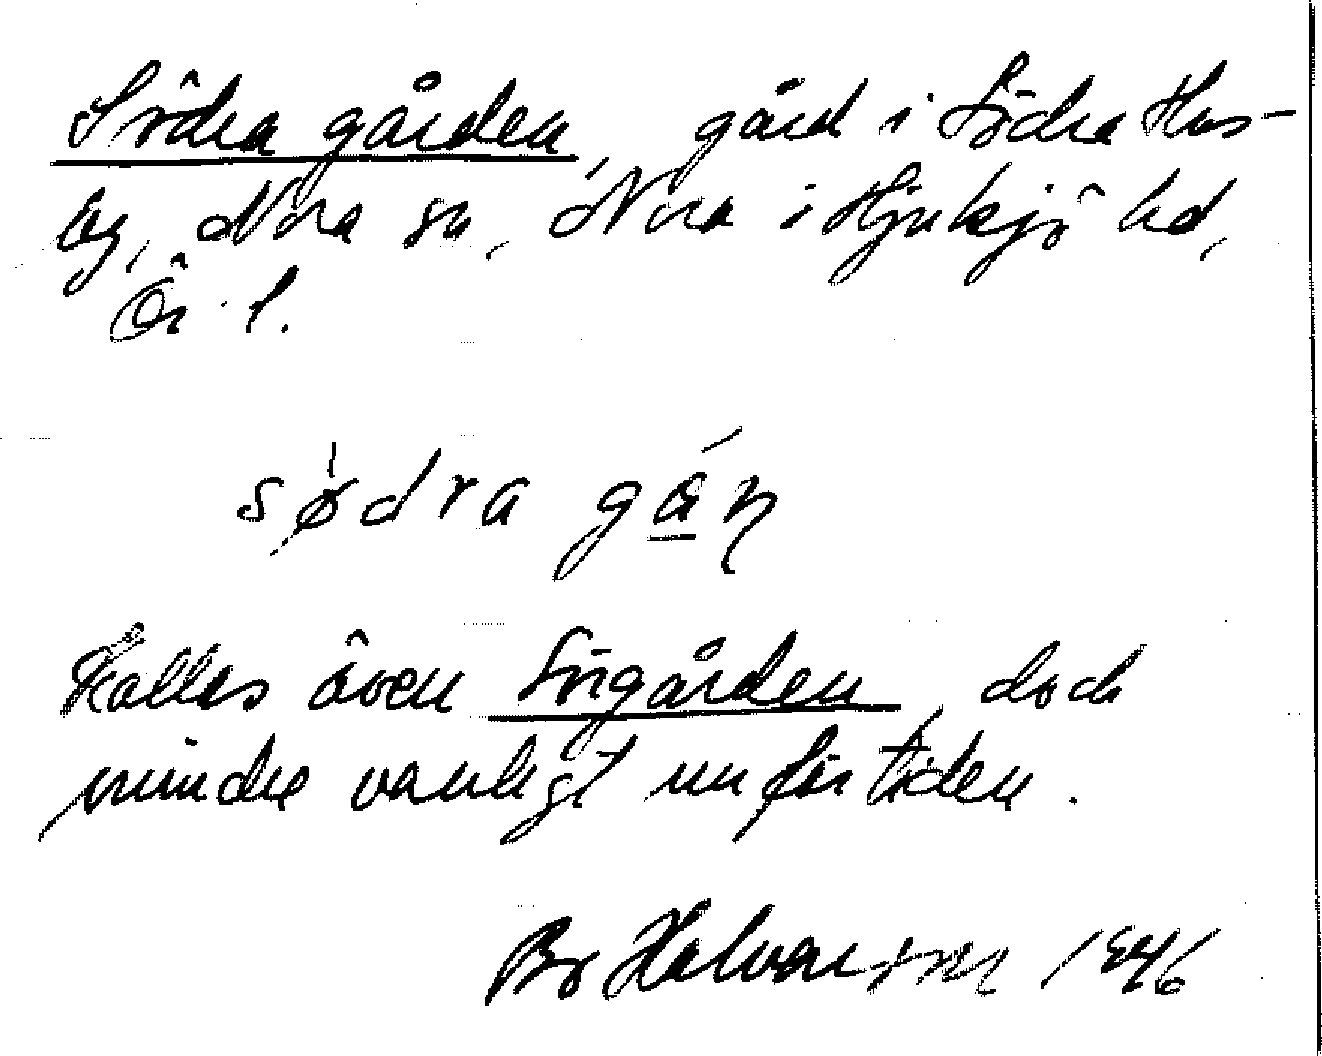 Södra gården, gård i Södra Hus-
by, Nora sn, Nora i Hjulsjö hd,
Ör. l.
sødra gán
Kallas även Sörgården, doch
mindre vanligt nu för tiden.
Bo Halvarson 1946